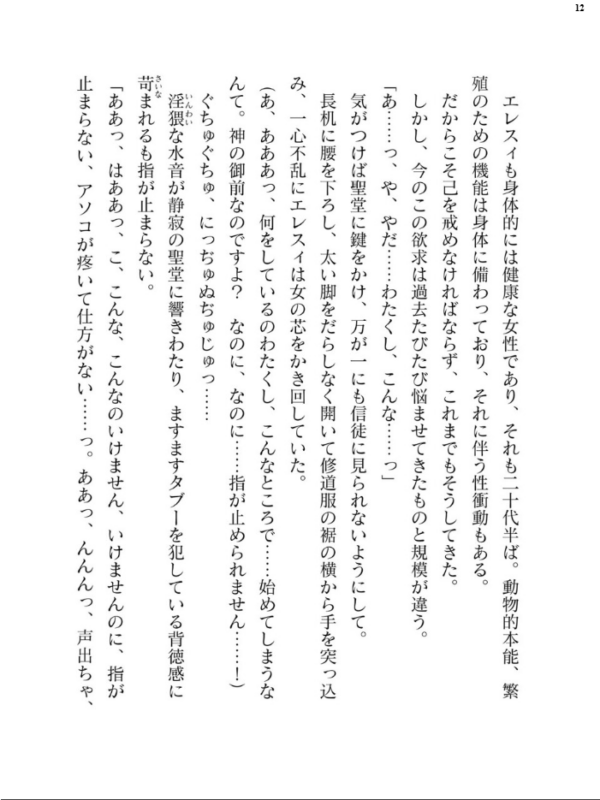 12
エレスィも身体的には健康な女性であり、それも二十代半ば。動物的本能、繁
殖のための機能は身体に備わっており、それに伴う性衝動もある。
だからこそ己を戒めなければならず、これまでもそうしてきた。
しかし、今のこの欲求は過去たびたび悩ませてきたものと規模が違う。
「あ……っ、や、やだ……わたくし、こんな……っ」
気がつけば聖堂に鍵をかけ、万が一にも信徒に見られないようにして。
長机に腰を下ろし、太い脚をだらしなく開いて修道服の裾の横から手を突っ込
み、一心不乱にエレスィは女の芯をかき回していた。
(あ、あああっ、何をしているのわたくし、こんなところで……始めてしまうな
んて。神の御前なのですよ？　なのに、なのに……指が止められません……！)
ぐちゅぐちゅ、にっちゅぬぢゅじゅっ……
淫猥な水音が静寂の聖堂に響きわたり、ますますタブーを犯している背徳感に
いんわい
苛まれるも指が止まらない。
さいな
「ああっ、はああっ、こ、こんな、こんなのいけません、いけませんのに、指が
止まらない、アソコが疼いて仕方がない……っ。ああっ、んんんっ、声出ちゃ、